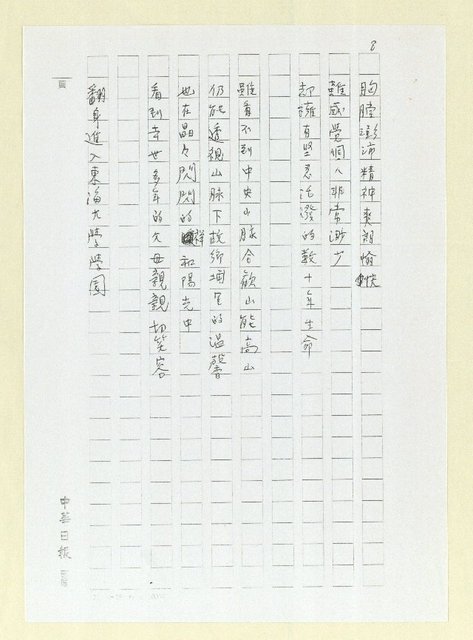 8
胸膛澎沛精神爽朗愉快
雖感覺個人非常渺少
却擁有堅忍活潑的數十年生命
雖看不到中央山脉合歡山能高山
仍能透視山脉下故鄉埔里的溫馨
也在晶々閃閃的祥和陽光中
看到去世多年的父母親親切笑容
翻身進入東海大學學園
頁
中華日報